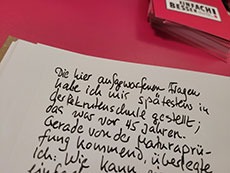 EINFACH
BESSER
Die hier aufgeworfenen Fragen
habe ich mir spätestens in
der Rekrutenschule gestellt;
das war vor 45 Jahren.
Gerade von der Maturaprü-
fung kommend, überlegte
ich: Wie kann